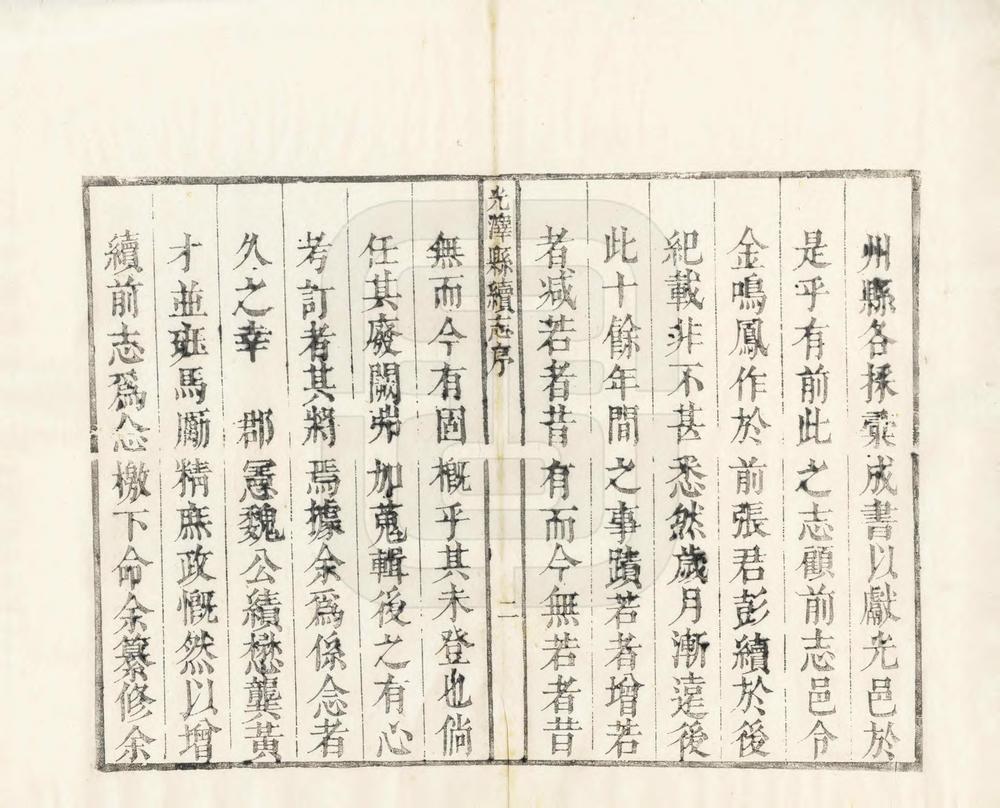 州縣各採彙成書以獻光邑於
是乎有前此之志顧前志邑令
金鳴鳳作於前張君彭續於後
紀載非不甚悉然歲月漸遠後
此十餘年間之事蹟若者增若
者减若者昔有而今無若者昔
光澤縣續志序
二
無而今有固槪乎其未登也倘
任其廢闕弗加蒐輯後之有心
考訂者其將焉據余爲係念者
久之幸　郡憲魏公績懋龔黃
才並班馬勵精庶政慨然以增
續前志爲念檄下命余纂修余